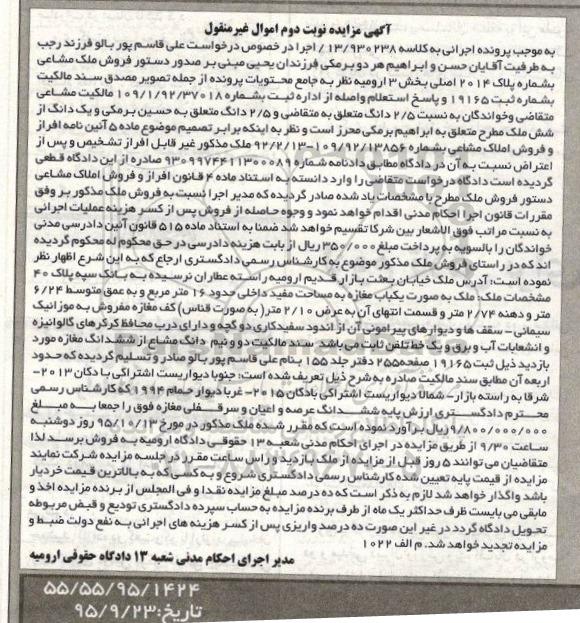 آگهی مزایده نوبت دوم اموال غیرمنقول
به موجب پرونده اجرائی به کلاسه ۱۳/۹۳۰۲۳۸ اجرا در خصوص درخواست علی قاسم پور بالو فرزند رجب
به طرفیت آقایان حسن و ابراهیم هر دو برمکی فرزندان یحیی مبنی بر صدور دستور فروش ملک مشاعی
بشماره پلاک ۲۰۱۴ اصلی بخش ۳ ارومیه نظر به جامع محتویات پرونده از جمله تصویر مصدق سند مالکیت
بشماره ثبت ۱۹۱۶۵ و پاسخ استعلام واصله از اداره ثبت بشماره ۱۰۹/۱/۹۲/۳۷۰۱۸ مالکیت مشاعی
متقاضی وخواندگان به نسبت ۲/۵ دانگ متعلق به متقاضی و ۲/۵ دانگ متعلق به حسین برمکی و یک دانگ از
شش ملک مطرح متعلق به ابراهیم برمکی محرز است و نظر به اینکه برابر تصمیم موضوع ماده ۵ آئین نامه افراز
و فروش املاک مشاعی بشماره ۱۰۹/۹۲/۱۳۸۵۶-۹۲/۲/۱۳ ملک مذکور غیر قابل افراز تشخیص و پس از
اعتراض نسبت به آن در دادگاه مطابق دادنامه شماره ۹۳۰۹۹۷۴۴۱۱۳۰۰۰۸۹ صادره از این دادگاه قطعی
گردیده است دادگاه درخواست متقاضی را وارد دانسته به استناد ماده ۴ قانون افراز و فروش املاک مشاعی
دستور فروش ملک مطرح با مشخصات یاد شده صادر گردیده که مدیر اجرا نسبت به فروش ملک مذکور بر وفق
مقررات قانون اجرا احکام مدنی اقدام خواهد نمود و وجوه حاصله از فروش پس از کسر هزینه عملیات اجرائی
به نسبت مراتب فوق الاشعار بین شرکا تقسیم خواهد شد ضمنا به استناد ماده ۵۱۵ قانون آئین دادرسی مدنی
خواندگان را بالسویه به پرداخت مبلغ ۳۵۰/۰۰۰ ریال از بابت هزینه دادرسی در حق محکوم له محکوم گردیده
اند که در راستای فروش ملک مذکور موضوع به کارشناس رسمی دادگستری ارجاع که به این شرع اظهار نظر
نموده است: آدرس ملک خیابان بعثت بازار قدیم ارومیه راسته عطاران نرسیده به بانک سپه پلاک ۴۰
مشخصات ملک: ملک به صورت یکباب مغازه به مساحت مفید داخلی حدود ۱۶ متر مربع و به عمق متوسط ۶/۲۴
متر و دهنه ۲/۷۴ متر و قسمت انتهای آن به عرض ۲/۱۰ متر( به صورت قناس) کف مغازه مفروش به موزائیک
سیمانی- سقف ها و دیوارهای پیرامونی آن از اندود سفیدکاری دو گچه و دارای درب محافظ کرکرهای گالوانیزه
و انشعابات آب و برق و یک خط تلفن ثابت می باشد سند مالکیت دو و نیم دانگ مشاع از ششدانگ مغازه مورد
بازدید ذیل ثبت ۱۹۱۶۵ صفحه ۲۵۵ دفتر جلد ۱۵۵ بنام علی قاسم پور بالو صادر و تسلیم گردیده که حدود
اربعه آن مطابق سند مالکیت صادره به شرح ذیل تعریف شده است: جنوبا دیواریست اشتراکی با دکان ۲۰۱۳-
شرقا به راسته بازار- شمالا دیواریست اشتراکی بادکان ۲۰۱۵- غربا دیوار حمام ۱۹۹۴ که کارشناس رسمی
محترم دادگستری ارزش پایه ششدانگ عرصه و اعیان و سرقفلی مغازه فوق را جمعا به مبلغ
۹/۸۰۰/۰۰۰/۰۰۰ ریال برآورد نموده است که مقرر شده ملک مذکور در مورخ ۹۵/۱۰/۱۳ روز دوشنبه
ساعت ۹/۳۰ از طریق مزایده در اجرای احکام مدنی شعبه ۱۳ حقوقی دادگاه ارومیه به فروش برسد لذا
متقاضیان می توانند ۵ روز قبل از مزایده از ملک بازدید و راس ساعت مقرر در جلسه مزایده شرکت نمایند
مزایده از قیمت پایه تعیین شده کارشناس رسمی دادگستری شروع و به کسی که به بالاترین قیمت خریدار
باشد واگذار خواهد شد لازم به ذکر است که ده درصد مبلغ مزایده نقدا و فی المجلس از برنده مزایده اخذ و
مابقی می بایست ظرف حداکثر یک ماه از طرف برنده مزایده به حساب سپرده دادگستری تودیع و قبض مربوطه
تحویل دادگاه گردد در غیر این صورت ده درصد واریزی پس از کسر هزینه های اجرائی به نفع دولت ضبط و
مزایده تجدید خواهد شد. م الف ۱۰۲۲
مدیر اجرای احکام مدنی شعبه ۱۳ دادگاه حقوقی ارومیه
۵۵/۵۵/۹۵/۱۴۲۴
تاریخ:۹۵/۹/۲۳